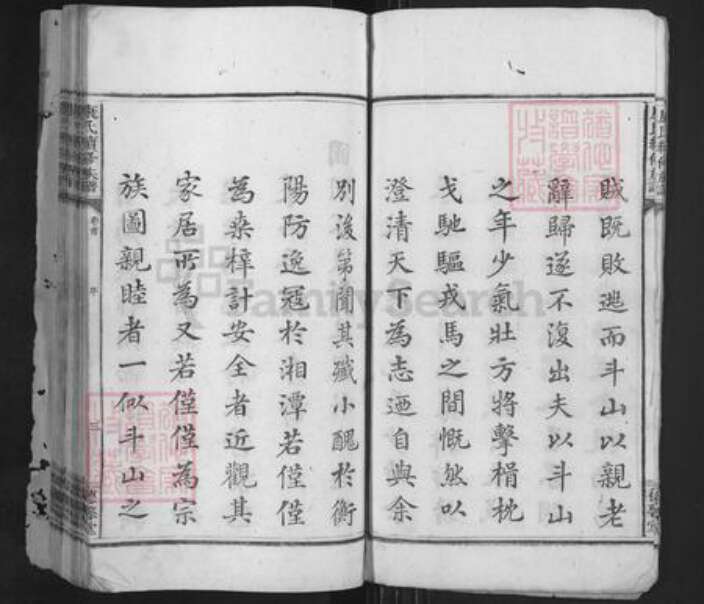 賊既敗逃而斗山以親老
辭歸遂不復出夫以斗山
之年少氣壯方將擊楫枕
戈馳驅戎馬之間慨然以
澄清天下為志迺自與余
別後第聞其殲小醜於衡
陽防逸冦於湘潭若僅僅
為桒梓計安全者近觀其
家居所為又若僅僅為宗
族圖親睦者一似斗山之
氏續修族譜
卷首
序
三
FamilySearch